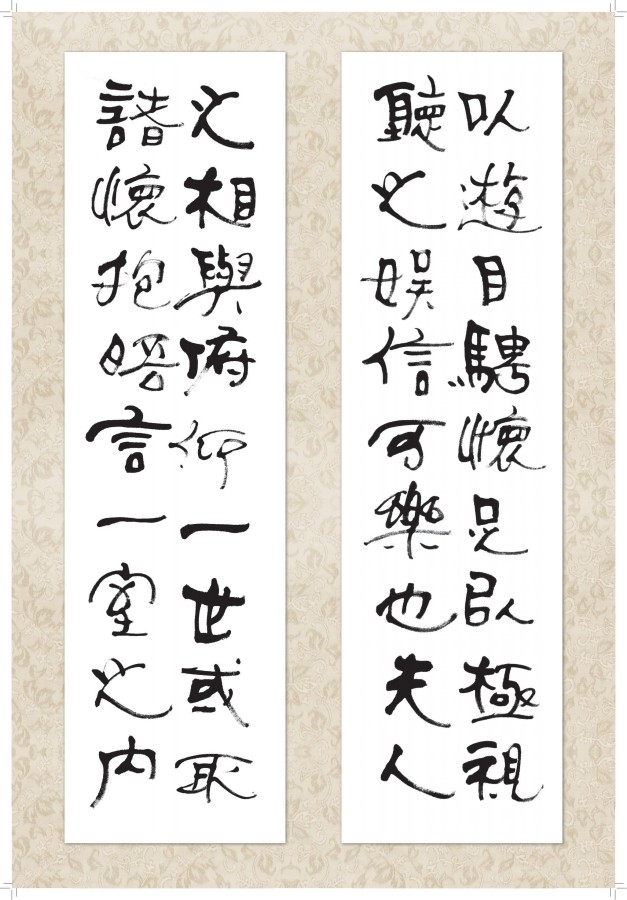 以遊目騁懷足以極視
聽之娛信可樂也夫人
之相與俯仰一世或取
諸懷抱晤言一室之內